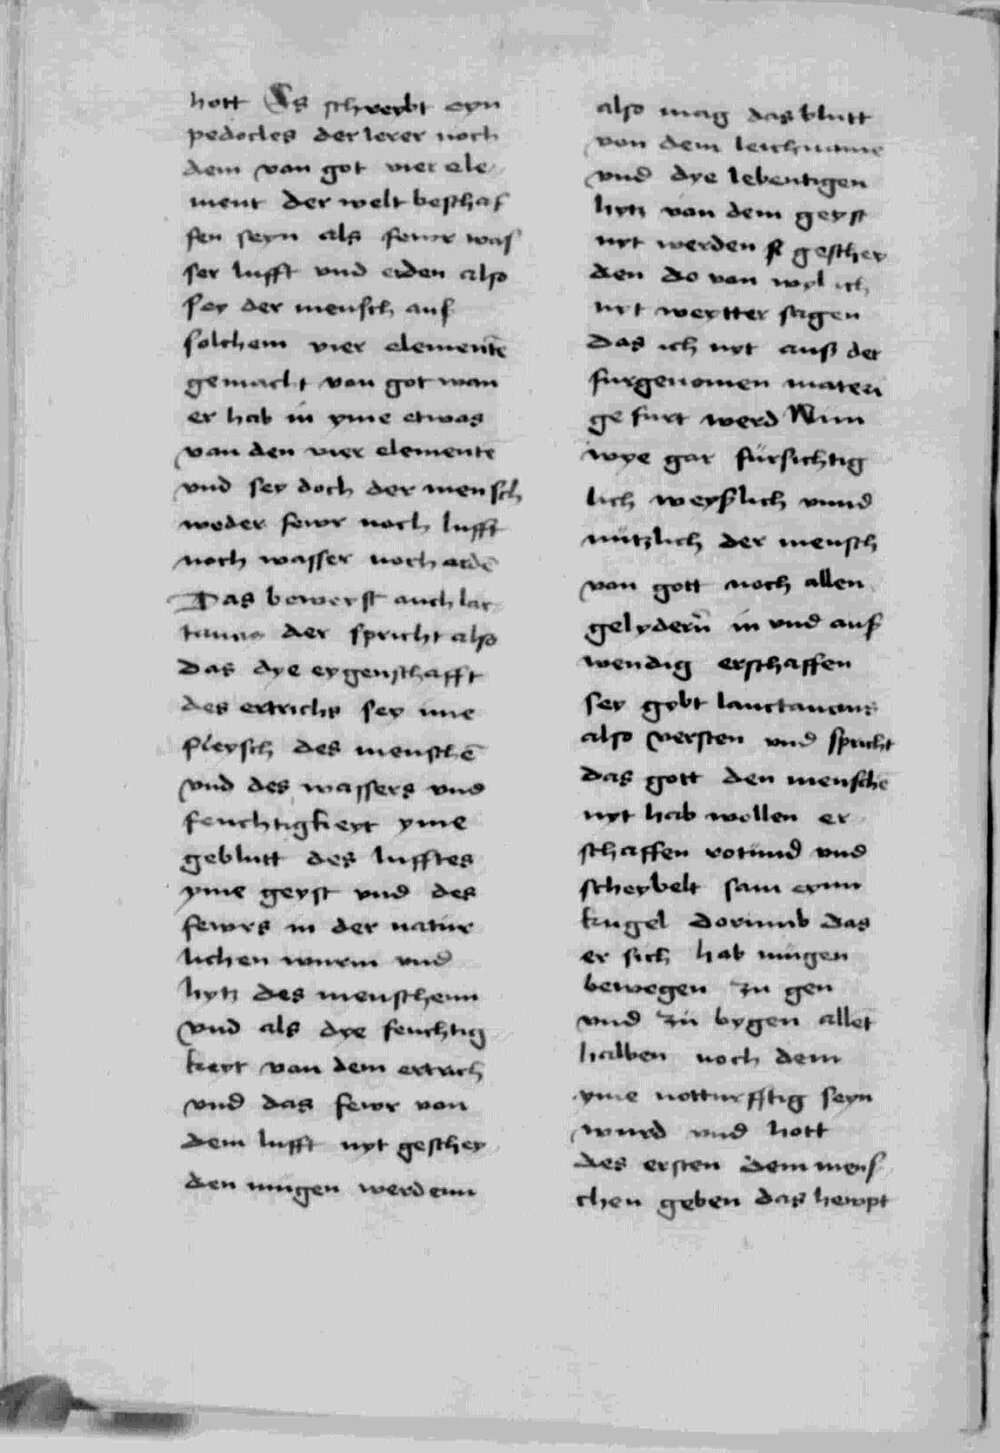 hott Es schreybt eyn
pedocles der lerer noch
dem von got vier ele
ment der welt beschaf
fen seyn als fewr was
ser lufft vnd erden also
sey der mensch auß
solchem vier elementē
gemacht von got wan
er hab in yme etwas
von den vier elementē
vnd sey doch der mensch
weder fewr noch lufft
noch wasser noch erdē
Das beweyst auch lac
tanno der spricht also
das dye eygenschafft
des ertrichs sey ime
fleysch des menschē
vnd des wassers vnd
feuchtigkeyt yme
geblutt des lufftes
yme geyst vnd des
fewrs in der natur
lichen wurm vnd
hytz des menschenn
vnd als dye feuchtig
keyt von dem ertrich
vnd das fewr von
dem lufft nyt geschey
den mugen werdenn
also mag das blutt
von dem leichname
vnd dye lebentigen
hytz von dem geyst
nyt werden geschey
den do von wyl ich
nyt weytter sagen
das ich nyt auß der
furgenomen materi
gefurt werd Nun
wye gar fürsichtig
lich weyßlich vnnd
nützlich der mensch
von gott noch allen
gelydern̄ in vnd auß
wendig erschaffen
sey gybt lanctancius
also versten vnd spricht
das gott den menschē
nyt hab wollen er
schaffen rotund vnd
scheybelt sam eynn
kugel dorumb das
er sich hab mügen
bewegen zu gen
vnd zu bygen allet
halben noch dem
yme notturfftig seyn
wurd vnd hott
des ersten dem mens
chen geben das hewpt